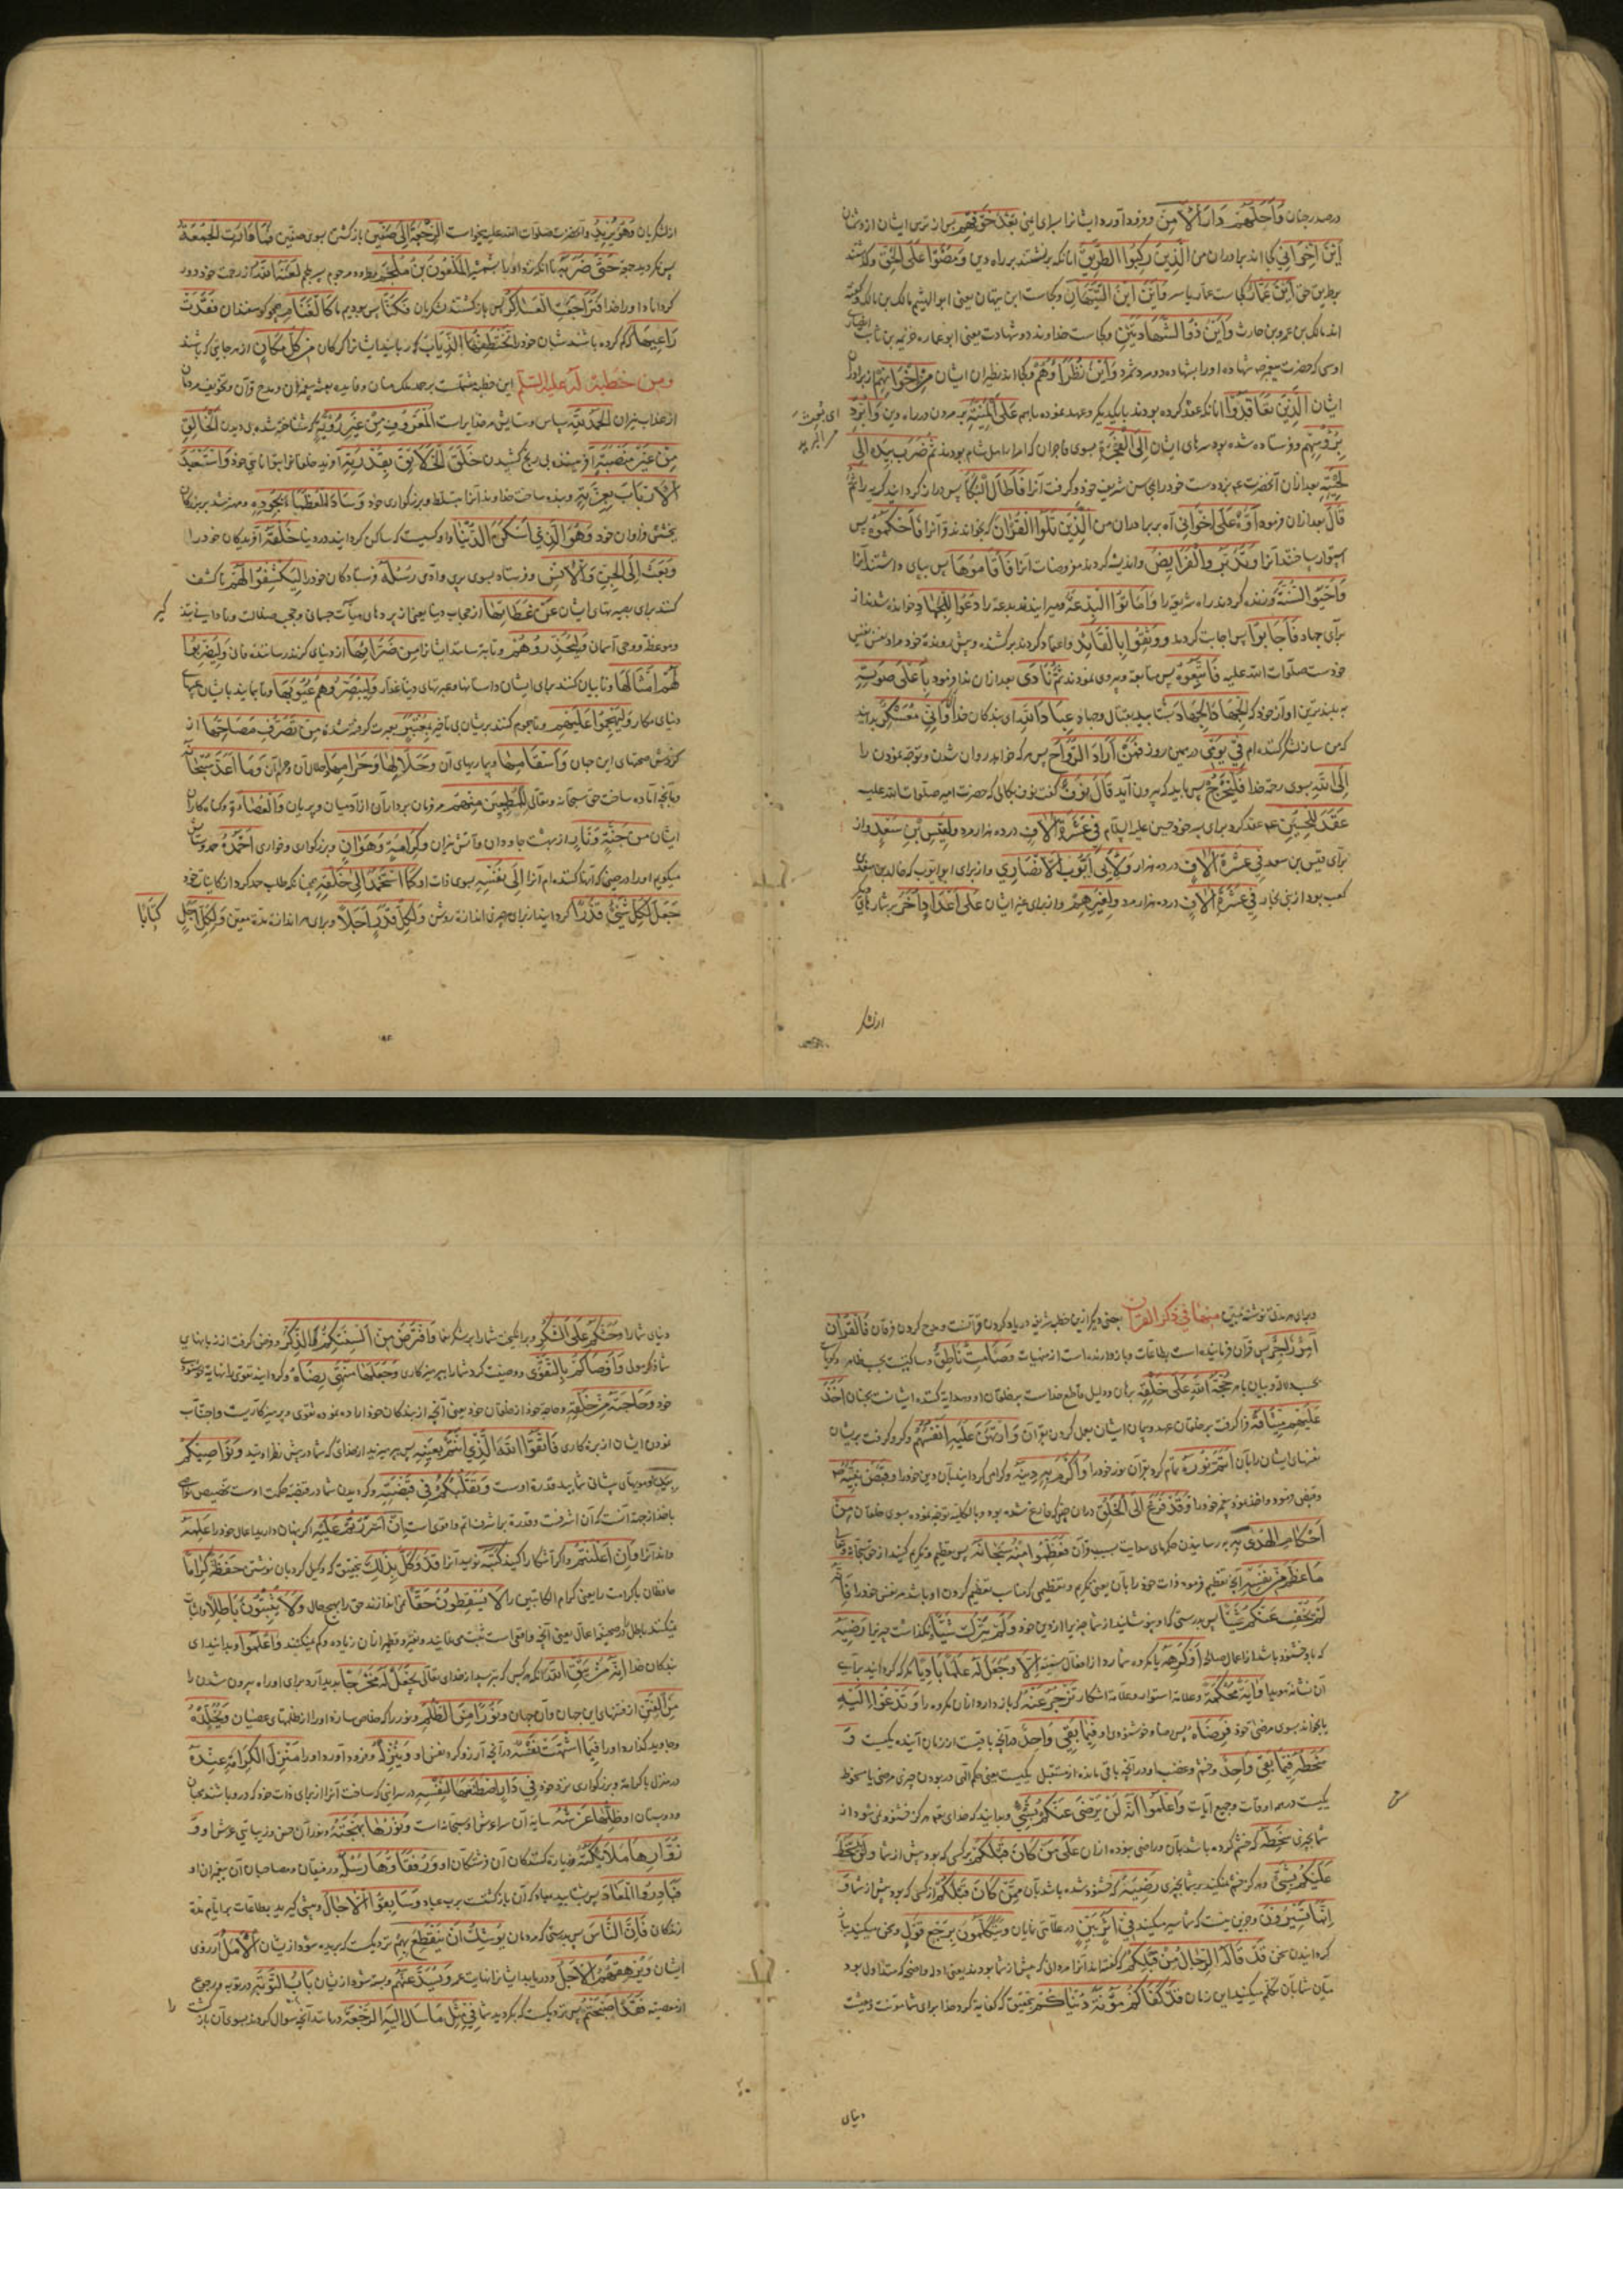 در صدر جنان وَأَحَلَّهُمْ دَارَ الْأَمْنِ و فرود آورد ایشانرا بسرای ایمنی بَعْدَ خَوْفِهِمْ پس از ترس ایشان از دشمنان
أَيْنَ إِخْوَانِي کجا اند برادران من الَّذِينَ رَكِبُوا الطَّرِيقَ آنانکه برنشستند بر راه دین وَمَضَوْا عَلَى الْحَقِّ و گذشتند
بر طریق حق أَيْنَ عَمَّارٌ کجاست عمار یاسر وَأَيْنَ ابْنُ التَّيِّهَانِ و کجاست ابن تیهان یعنی ابو الهیثم مالک بن مالک و گفته
اند مالک بن عمرو بن حارث وَأَيْنَ ذُو الشَّهَادَتَيْنِ و کجاست خداوند دو شهادت یعنی ابو عماره خزیمه بن ثابت انصاری
اوسی که حضرت پیغمبر ص شهاده او را بشهاده دو مرد شمرد وَأَيْنَ نُظَرَاؤُهُمْ و کجا اند نظیران ایشان مِنْ إِخْوَانِهِمْ از برادران
ایشان الَّذِينَ تَعَاقَدُوا آنانکه عقد کرده بودند با یکدیگر و عهد نموده باهم عَلَى الْمَنِيَّةِ بر مردن در راه دین وَأُبْرِدَ
بِرُءُوسِهِمْ و فرستاده شده بود سرهای ایشان إِلَى الْفَجَرَةِ بسوی فاجران که امرا اهل شام بودند ثُمَّ ضَرَبَ بِيَدِهِ إِلَى
لِحْيَتِهِ بعد از آن آنحضرت ع بزد دست خود را بمحاسن شریف خود و گرفت آنرا فَأَطَالَ الْبُكَاءَ پس دراز کردانید گریه را ثُمَّ
قَالَ بعد از آن فرمود أَوْهِ عَلَى إِخْوَانِي آه بر برادران من الَّذِينَ تَلَوُا الْقُرْآنَ که بخواندند قرآنرا فَأَحْكَمُوهُ پس
استوار ساختند آنرا وَتَدَبَّرُوا الْفَرَائِضَ و اندیشه کردند مفروضات آنرا فَأَقَامُوهَا پس بپای داشتند آنرا
وَأَحْيَوُا السُّنَّةَ و زنده کردند راه شریعة را وَأَمَاتُوا الْبِدْعَةَ و میرانیدند بدعة را دُعُوا لِلْجِهَادِ خوانده شدند از
برای جهاد فَأَجَابُوا پس اجابت کردند وَوَثِقُوا بِالْقَائِدِ و اعتماد کردند بر کشنده و پیش رونده خود مراد نفس نفیس
خودست صلوات الله علیه فَاتَّبَعُوهُ پس متابعة و پیروی نمودند ثُمَّ نَادَى بعد از آن ندا فرمود بِأَعْلَى صَوْتِهِ
به بلندترین آواز خود که الْجِهَادَ الْجِهَادَ بشتابید بقتال و جهاد عِبَادَ اللَّهِ ای بندگان خدا وَإِنِّي مُعَسْكِرٌ بدانید
که من ساز لشکر کننده ام فِي يَوْمِي در همین روز فَمَنْ أَرَادَ الرَّوَاحَ پس هر که خواهد روان شدن و توجه نمودن را
إِلَى اللَّهِ بسوی رحمة خدا فَلْيَخْرُجْ پس باید که بیرون آید قَالَ نَوْفٌ گفت نوف بکالی که حضرت امیر صلوات الله علیه
عَقَدَ لِلْحُسَيْنِ ع عقد کرد برای پسر خود حسین علیه السلام فِي عَشَرَةِ آلَافٍ در ده هزار مرد وَلِقَيْسِ بْنِ سَعْدٍ و از
برای قیس بن سعد فِي عَشَرَةِ آلَافٍ در ده هزار وَلِأَبِي أَيُّوبَ الْأَنْصَارِيِّ و از برای ابو ایوب که خالد بن سعد
کعب بود از بنی نجار فِي عَشَرَةِ آلَافٍ در ده هزار مرد وَلِغَيْرِهِمْ و از برای غیر ایشان عَلَى أَعْدَادٍ أُخَرَ بر شمارهای دیگر
از لشکر
از لشکریان وَهُوَ يُرِيدُ و آنحضرت صلوات الله علیه میخواست الرَّجْعَةَ إِلَى صِفِّينَ بازگشتن بسوی صفین فَمَا دَارَتِ الْجُمُعَةُ
پس نگردید جمعه حَتَّى ضَرَبَهُ تا آنکه زد او را بشمشیر الْمَلْعُونُ بْنُ مُلْجَمٍ مطرود و مرجوم پسر ملجم لَعَنَهُ اللَّهُ از رحمت خود دور
کرداناد او را خدا فَتَرَاجَعَتِ الْعَسَاكِرُ پس بازگشتند لشکریان فَكُنَّا پس بودیم ما كَأَغْنَامٍ همچو گوسفندان فَقَدَتْ
رَاعِيَهَا که گم کرده باشند شبان خود را تَخْتَطِفُهَا الذِّئَابُ که ربایند ایشانرا گرگان مِنْ كُلِّ مَكَانٍ از هر جایی که باشند
وَمِنْ خُطْبَةٍ لَهُ عَلَيْهِ السَّلَامُ این خطبه مشتملست بر حمد ملک منان و فایده بعثة پیغمبران و مدح قرآن و تخویف مردمان
از عذاب نیران الْحَمْدُ لِلَّهِ سپاس و ستایش مر خدایراست الْمَعْرُوفِ مِنْ غَيْرِ رُؤْيَةٍ که شناخته شده بی دیدن الْخَالِقِ
مِنْ غَيْرِ مَنْصَبَةٍ آفریننده بی رنج کشیدن خَلَقَ الْخَلَائِقَ بِقُدْرَتِهِ آفرید خلقانرا بتوانایی خود وَاسْتَعْبَدَ
الْأَرْبَابَ بِعِزَّتِهِ و بنده ساخت خداوندانرا بتسلط و بزرگواری خود وَسَادَ الْعُظَمَاءَ بِجُودِهِ و مهتر شد بر بزرگان
ببخشش فراوان خود وَهُوَ الَّذِي أَسْكَنَ الدُّنْيَا و او کسیست که ساکن کردانید در دنیا خَلْقَهُ آفریدگان خود را
وَبَعَثَ إِلَى الْجِنِّ وَالْإِنْسِ و فرستاد بسوی پری و آدمی رُسُلَهُ فرستادگان خود را لِيَكْشِفُوا لَهُمْ تا کشف
کنند برای بصیرتهای ایشان عَنْ غِطَائِهَا از حجاب دنیا یعنی از پردهای
و موعظه و وحی آسمان وَلِيُحَذِّرُوهُمْ و تا بترسانند ایشانرا مِنْ ضَرَّائِهَا از دنیای گزند رساننده فان وَلِيَضْرِبُوا
لَهُمْ أَمْثَالَهَا و تا بیان کنند برای ایشان داستانها و عبرتهای دنیا غدار وَلِيُبَصِّرُوهُمْ عُيُوبَهَا و تا بنمایند بایشان عیبهای
دنیای مکار وَلِيَهْجُمُوا عَلَيْهِمْ و تا هجوم کنند بر ایشان بی تأخیر بِمُعْتَبَرٍ بعبرت گرفته شده مِنْ تَصَرُّفِ مَصَاحِّهَا از
گردش صحتهای این جهان وَأَسْقَامِهَا و بیماریهای آن وَحَلَالِهَا وَحَرَامِهَا و حلال آن و حرام آن وَمَا أَعَدَّ سُبْحَانَهُ
و بآنچه آماده ساخت حق سبحانه و تعالی لِلْمُطِيعِينَ مِنْهُمْ مر فرمان برداران از آدمیان و پریان وَالْعُصَاةِ و گناه کاران
ایشان مِنْ جَنَّةٍ وَنَارٍ از بهشت جاودان و آتش نیران وَكَرَامَةٍ وَهَوَانٍ و بزرگواری و خواری أَحْمَدُهُ حمد و ستایش
میگویم او را إِلَى نَفْسِهِ بسوی ذات او كَمَا اسْتَحْمَدَ إِلَى خَلْقِهِ همچنانکه طلب حمد کرد از کاینات خود
جَعَلَ لِكُلِّ شَيْءٍ قَدْرًا کردانید از برای هر چیزی اندازه روشن وَلِكُلِّ قَدْرٍ أَجَلًا و برای هر اندازه مدة معین وَلِكُلِّ أَجَلٍ كِتَابًا
و برای هر مدتی نوشته مبین مِنْهَا فِي ذِكْرِ الْقُرْآنِ بعضی دیگر ازین خطبه شریفه در یاد کردن قرآنست و مدح کردن فرقان فَالْقُرْآنُ
آمِرٌ زَاجِرٌ پس قرآن فرماینده است بطاعات و باز دارنده است از منهیات وَصَامِتٌ نَاطِقٌ و ساکتست بحسب ظاهر و گویا
بحسب دلالة و بیان باهر حُجَّةُ اللَّهِ عَلَى خَلْقِهِ برهان و دلیل قاطع خداست بر خلقان او و هدایة کننده ایشانست بجنان أَخَذَ
عَلَيْهِمْ مِيثَاقَهُ فرا گرفت بر خلقان عهد و پیمان ایشان بعمل کردن بقرآن وَارْتَهَنَ عَلَيْهِ أَنْفُسَهُمْ و گرو گرفت بر ایشان
نفسهای ایشانرا بآن أَتَمَّ نُورَهُ تمام کرد بقرآن نور خود را وَأَكْرَمَ بِهِ دِينَهُ و گرامی کردانید بآن دین خود را وَقَبَضَ نَبِيَّهُ ص
و قبض فرمود و اخذ نمود پیغمبر خود را وَقَدْ فَرَغَ إِلَى الْخَلْقِ
أَحْكَامِ الْهُدَى بِهِ رسانیدن حکمهای هدایت بسبب قرآن فَعَظِّمُوا مِنْهُ سُبْحَانَهُ پس تعظیم و تکریم کنید از حق سبحانه و تعالی
مَا عَظَّمَ مِنْ نَفْسِهِ آنچه تعظیم فرمود ذات خود را بآن
لَمْ يُخْفِ عَنْكُمْ شَيْئًا پس بدرستی که او نپوشانید از شما چیزیرا از دین خود وَلَمْ يَتْرُكْ شَيْئًا و نگذاشت چیزیرا رَضِيَهُ
که باو خشنود باشد از اعمال صالحه أَوْ كَرِهَهُ یا مکروه شمارد از افعال سیئة إِلَّا وَجَعَلَ لَهُ عَلَمًا بَادِيًا مگر که کردانید برای
آن نشانه هویدا وَآيَةً مُحْكَمَةً و علامة استوار و علامة آشکار تَزْجُرُ عَنْهُ که باز دارد از آن مکروه را أَوْ تَدْعُو إِلَيْهِ
یا بخواند بسوی مرضی خود فَرِضَاهُ پس رضا و خوشنودی او فِيمَا بَقِيَ وَاحِدٌ در آنچه باقیست از زمان آینده یکیست وَ
سَخَطُهُ فِيمَا بَقِيَ وَاحِدٌ و خشم و غضب او در آنچه باقی مانده از مستقبل یکیست
یکیست در همه اوقات و جمیع آیات وَاعْلَمُوا أَنَّهُ لَنْ يَرْضَى عَنْكُمْ بِشَيْءٍ و بدانید که خدای تعالی هرگز خشنود نمی شود از
شما بچیزی سَخِطَهُ که خشم کرده باشد بآن عَلَى مَنْ كَانَ قَبْلَكُمْ بر کسی که بود پیش از شما وَلَنْ يَسْخَطَ
عَلَيْكُمْ بِشَيْءٍ و هرگز خشم نمیکند بر شما بچیزی رَضِيَهُ که خشنود شده باشد بآن مِمَّنْ كَانَ قَبْلَكُمْ از کسی که بود پیش از شما وَ
إِنَّمَا تَسِيرُونَ و جزین نیست که شما سیر میکنید فِي أَثَرٍ بَيِّنٍ در علامتی نمایان وَتَتَكَلَّمُونَ بِرَجْعِ قَوْلٍ و سخن میکنید باز
گردانیدن سخن قَدْ قَالَهُ الرِّجَالُ مِنْ قَبْلِكُمْ که گفته اند آنرا مردانی که پیش از شما بودند
قَدْ كَفَاكُمْ مَؤُونَةَ دُنْيَاكُمْ بتحقیق که کفایة کرد خدا برای شما مؤنت و معیشت
دنیای
دنیای شما را وَحَثَّكُمْ عَلَى الشُّكْرِ و برانگیخت شما را بر شکر نعما وَافْتَرَضَ مِنْ أَلْسِنَتِكُمُ الذِّكْرَ و فرض گرفت از زبانهای
شما ذکر مولی وَأَوْصَاكُمْ بِالتَّقْوَى و وصیت کرد شما را بپرهیزکاری وَجَعَلَهَا مُنْتَهَى رِضَاهُ و کردانید تقوی را نهایة خوشنودی
خود وَحَاجَتَهُ مِنْ خَلْقِهِ و حاجة خود از خلقان خود
نمودن ایشان از بزه کاری فَاتَّقُوا اللَّهَ الَّذِي أَنْتُمْ بِعَيْنِهِ پس بپرهیزید از خدای که شما در پیش نظر اوئید وَنَوَاصِيكُمْ
بِيَدِهِ و مویهای پیشانی شما بید قدرة اوست وَتَقَلُّبُكُمْ فِي قَبْضَتِهِ و گردیدن شما در قبضه حکمت اوست
إِنْ أَسْرَرْتُمْ عَلِمَهُ اگر پنهان دارید اعمال خود را عَلِمَهُ
داند آنرا وَإِنْ أَعْلَنْتُمْ و اگر آشکارا کنید كَتَبَهُ نویسد آنرا قَدْ وَكَّلَ بِذَلِكَ بتحقیق که وکیل کرد بآن نوشتن حَفَظَةً كِرَامًا
حافظان باکرامت را یعنی کرام الکاتبین را لَا يُسْقِطُونَ حَقًّا نمی اندازند حق را بهیچ حال وَلَا يُثْبِتُونَ بَاطِلًا و اثبات
نمیکنند باطل را وَاعْلَمُوا و بدانید ای
بندگان خدا أَنَّهُ مَنْ يَتَّقِ اللَّهَ آنکه هر کس که بترسد از خدای تعالی يَجْعَلْ لَهُ مَخْرَجًا پدید آرد برای او راه بیرون شدن را
مِنَ الْفِتَنِ از فتنهای این جهان و آن جهان وَنُورًا مِنَ الظُّلَمِ و نور را که خلاص سازد او را از ظلمتهای عصیان وَيُخَلِّدْهُ
و جاوید گذارد او را فِيمَا اشْتَهَتْ نَفْسُهُ در آنچه آرزو کرد نفس او وَيُنْزِلْهُ و فرود آورد او را مَنْزِلَ الْكَرَامَةِ عِنْدَهُ
در منزل باکرامة و بزرگواری نزد خود فِي دَارٍ اصْطَنَعَهَا لِنَفْسِهِ در سرائی که ساخت آنرا از برای ذات خود
و دوستان او ظِلُّهَا عَرْشُهُ سایه آن سرا عرش او سبحانه است وَنُورُهَا بَهْجَتُهُ و نور آن حسن و زیبایی عرش او وَ
زُوَّارُهَا مَلَائِكَتُهُ و زیارة کنندگان آن فرشتگان او وَرُفَقَاؤُهَا رُسُلُهُ و رفیقان و مصاحبان آن پیغمبران او
فَبَادِرُوا الْمَعَادَ پس بشتابید بمعاد که آن بازگشتست برب عباد وَسَابِقُوا الْآجَالَ و پیشی گیرید بطاعات بر ایام مدة
زندگان فَإِنَّ النَّاسَ پس بدرستی که مردمان يُوشِكُ أَنْ يَنْقَطِعَ بِهِمُ نزدیکست که بریده شود از ایشان الْأَمَلُ آرزوی
ایشان وَيَرْهَقَهُمُ الْأَجَلُ و دریابد ایشانرا نهایت عمر وَيُسَدَّ عَنْهُمْ و بسته شود از ایشان بَابُ التَّوْبَةِ در توبه و رجوع
از معصیة فَقَدْ أَصْبَحْتُمْ پس نزدیکست که بگردید شما فِي مِثْلِ مَا سَأَلَ إِلَيْهِ الرَّجْعَةَ در مانند آنچه سؤال کردند بسوی آن بازگشت را